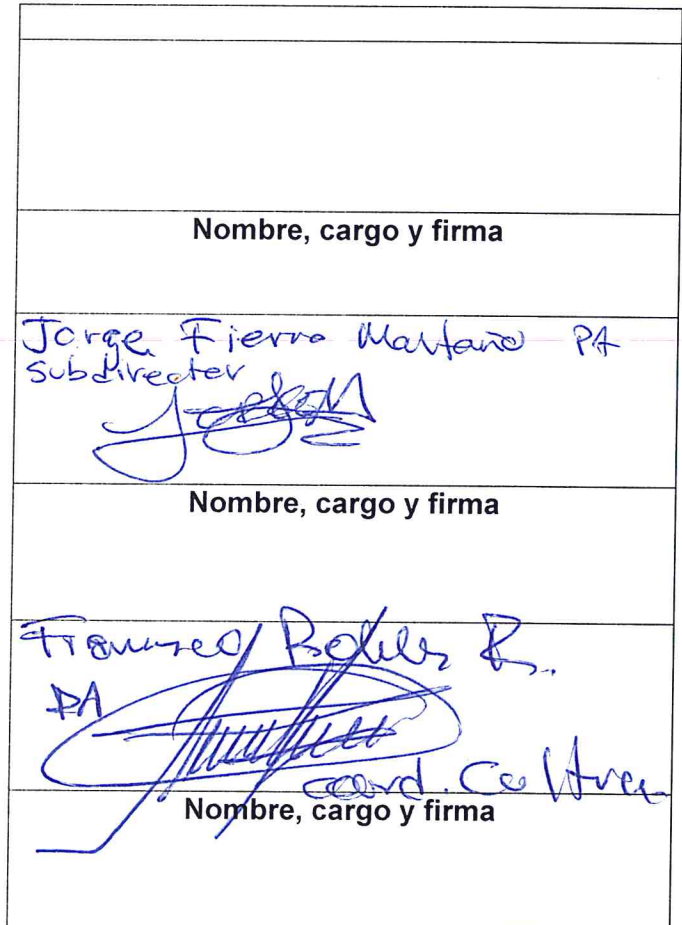 Nombre, cargo y firma
Jorge Fierro PA
Subdirector
Nombre, cargo y firma
Francisco Robles R.
PA
coord. Cultura
Nombre, cargo y firma